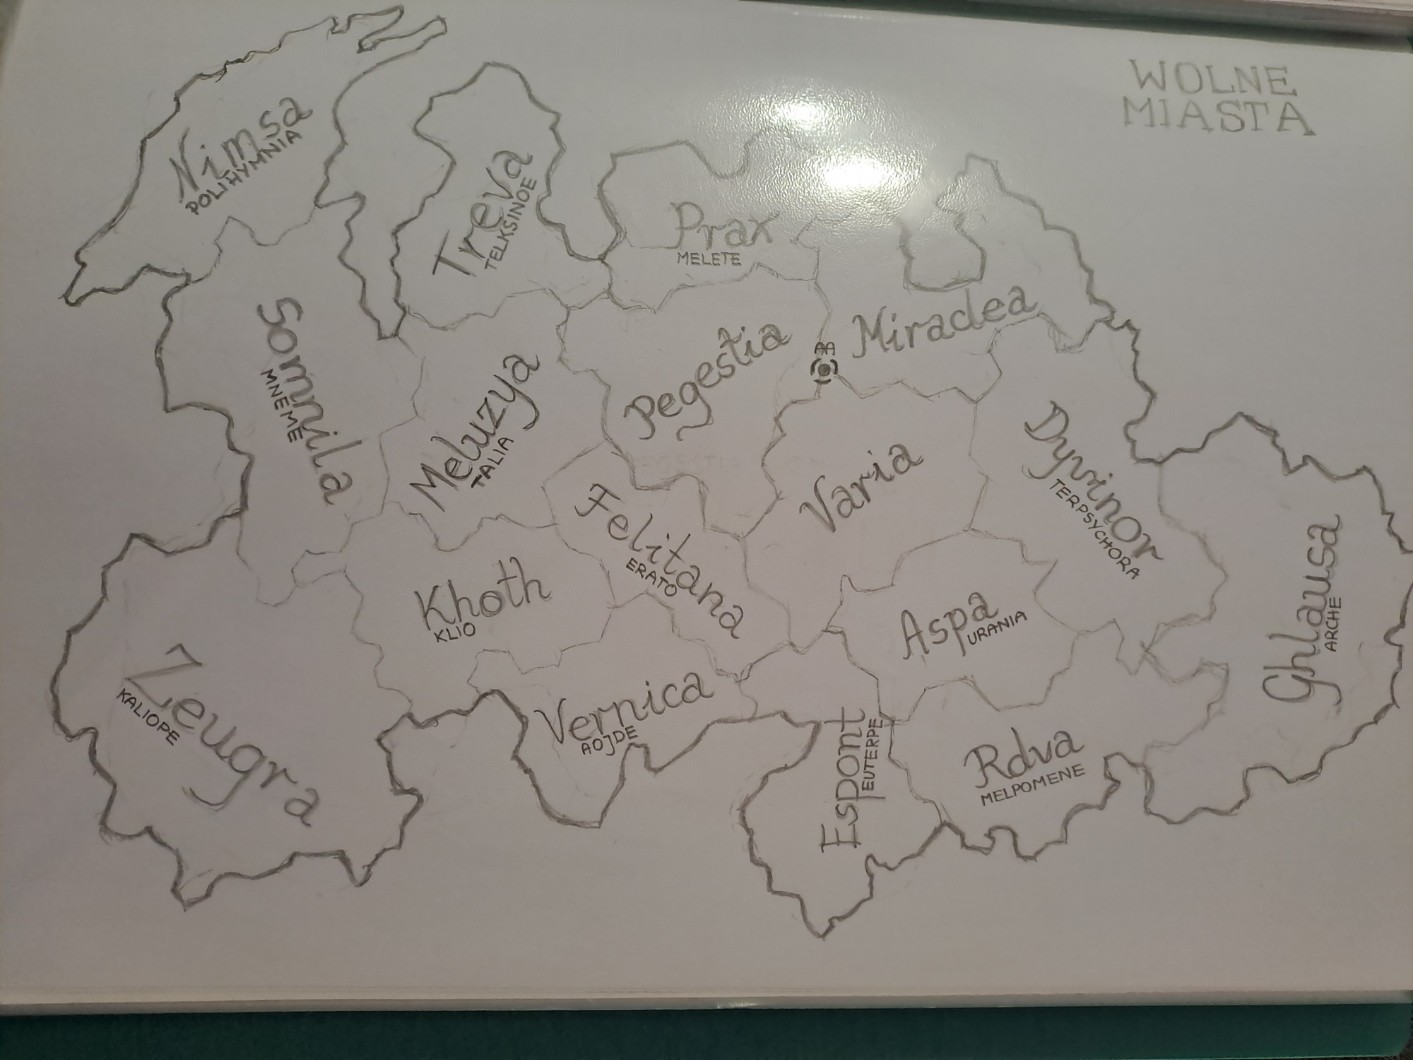 WOLNE
MIASTA
Nimsa
POLIHYMNIA
Treva
TELKSINOE
Prax
MELETE
Somnila
MNEME
Meluzya
TALIA
Pegestia
Miradea
Varia
Dyvinor
TERPSYCHORA
Felitana
ERATO
Khoth
KLIO
Aspa
URANIA
Ghlausa
ARCHE
Zeugra
KALIOPE
Vernica
AOJDE
Espont
EUTERPE
Rdva
MELPOMENE